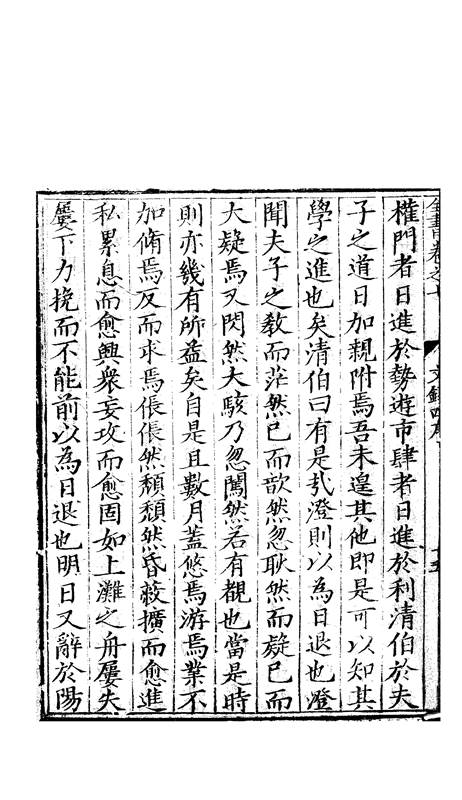 全書卷之七 文錄四序
權門者日進於勢遊市肆者日進於利清伯於夫
子之道日加親附焉吾未遑其他即是可以知其
學之進也矣清伯曰有是㢤澄則以為日退也澄
聞夫子之教而茫然已而歆然忽耿然而疑已而
大疑焉又閃然大駭乃忽闖然若有覩也當是時
則亦幾有所益矣自是且數月蓋悠焉游焉業不
加脩焉反而求焉倀倀然頹頹然昏蔽擴而愈進
私累息而愈興衆妄攻而愈固如上灘之舟屢失
屢下力挽而不能前以為日退也明日又辭於陽